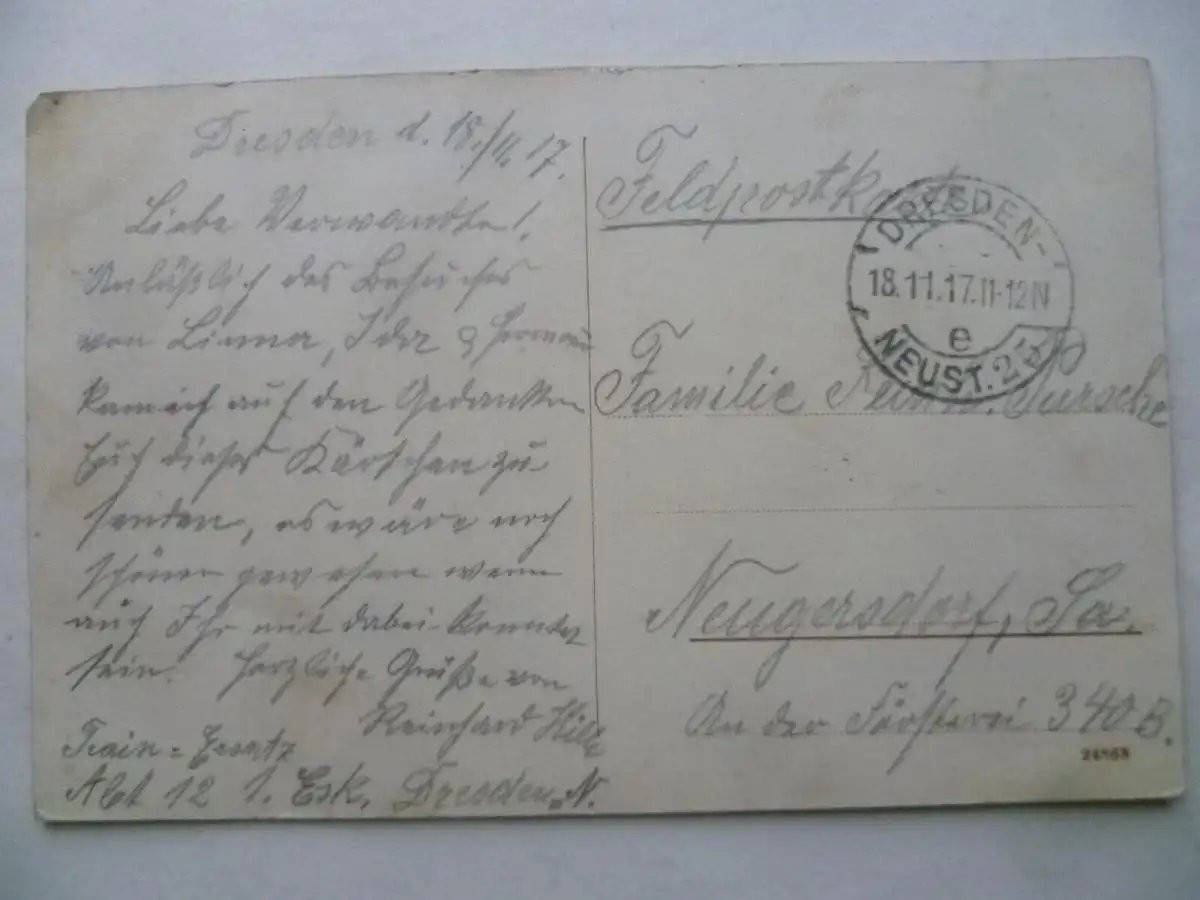 Dresden d. 18./11. 17.
Liebe Verwandte!
Anläßlich des Besuches
von Linna, Ida & Herman
kam ich auf den Gedanken
Euch dieses Kärtchen zu
senden, es wäre noch
schöner gewesen wenn
auch Ihr mit dabei konntet
sein. Herzliche Grüße von
Reinhard
Train-Ersatz
Abt 12 1. Esk. Dresden-N.
Feldpostkarte
DRESDEN-
18.11.17.11-12N
e
NEUST. 25
Familie
Neugersdorf, Sa.
An der Försterei 340 B.
24868